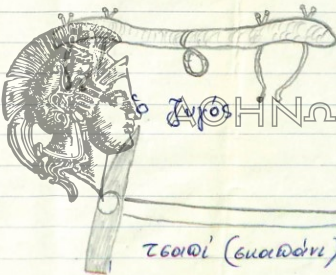 ὁ ζυγός
ΑΘΗΝΩ
τσαπί (σκαπάνι)